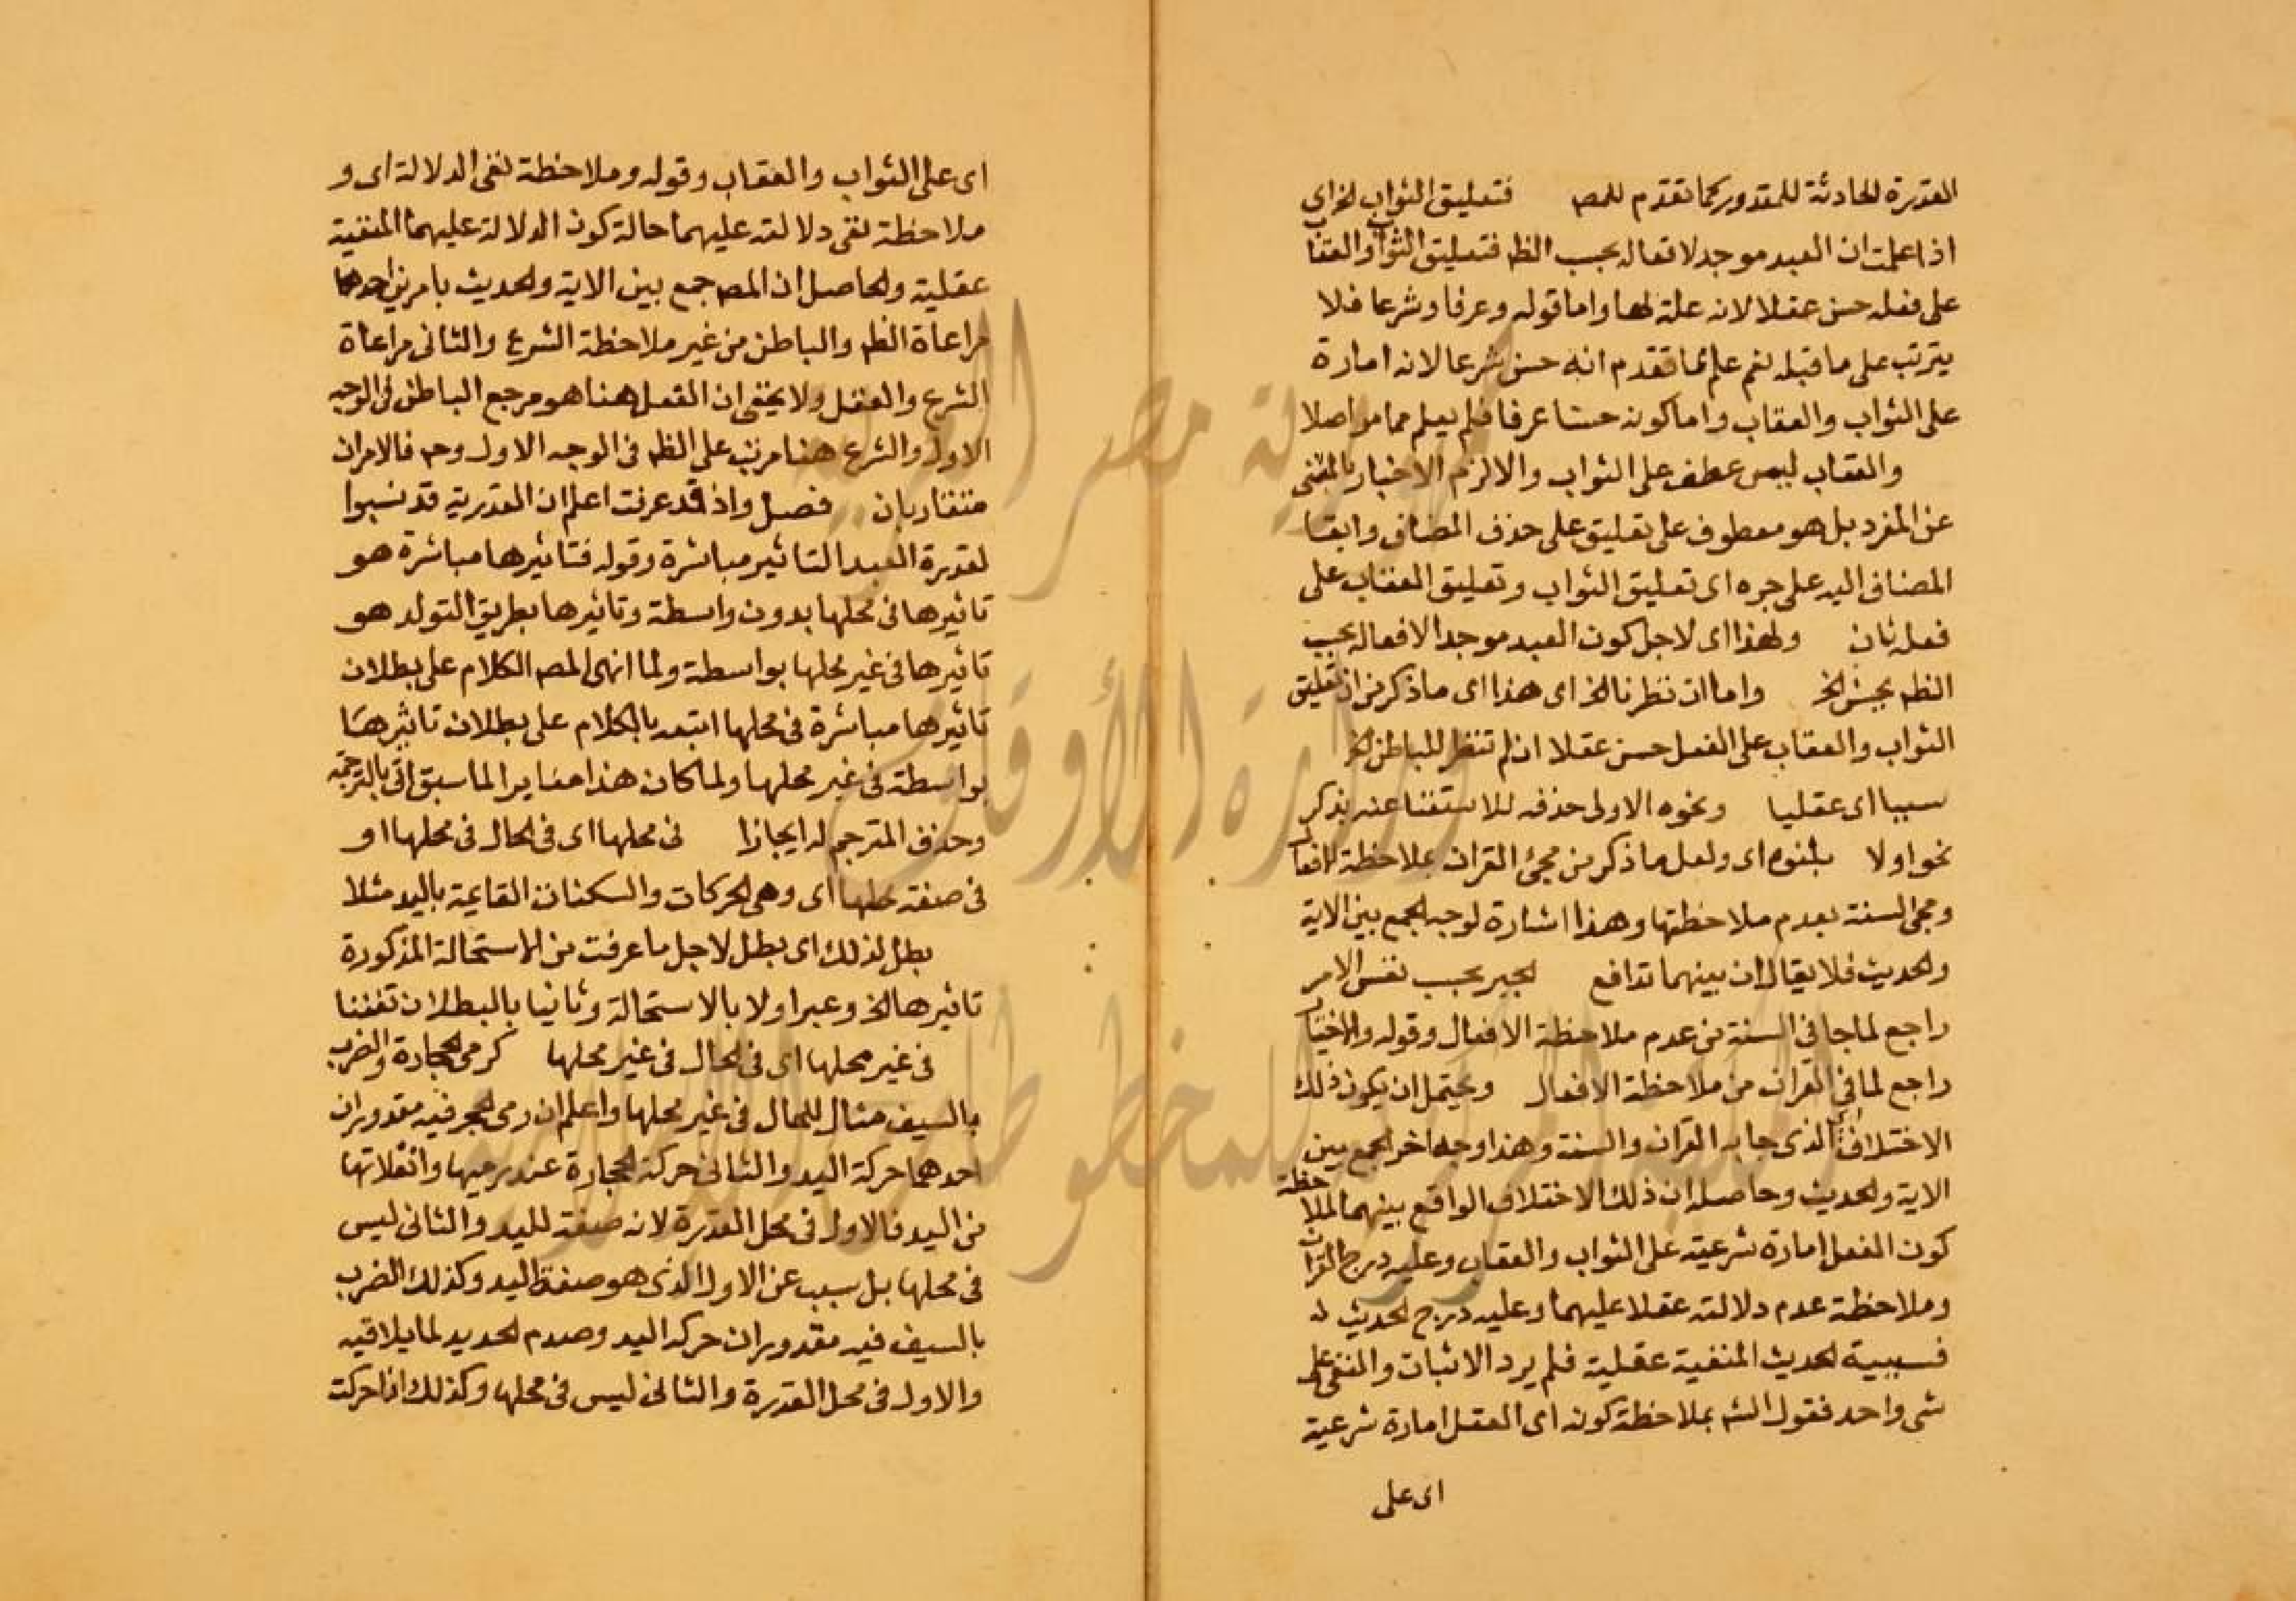 القدرة الحادثة للمقدور كما تقدم للمص فتعليق الثواب الخ اى
اذا علمت ان العبد موجد لافعاله بحسب الظم فتعليق الثواب والعقا
على فعله حسن عقلا لانه علة لها واما قوله وعرفا وشرعا فلا
يترتب على ما قبله نعم علم مما تقدم انه حسن شرعا لانه امارة
على الثواب والعقاب واما كونه حسنا عرفا فلم يعلم مما مر اصلا
والعقاب ليس عطف على الثواب والا لزم الاخبار بالمثنى
عن المفرد بل هو معطوف على تعليق على حذف المضاف وابقا
المضاف اليه على جره اى تعليق الثواب وتعليق العقاب على
فعله ثان ولهذا اى لاجل كون العبد موجد الافعاله بحسب
الظم بحسن الخ واما ان نظرنا الخ اى هذا اى ما ذكر من ان تعليق
الثواب والعقاب على الفعل حسن عقلا ان لم تنظر للباطن الخ
سببا اى عقليا ونحوه الاولى حذفه للاستغنا عنه بذكر
نحو اولا اى ولعل ما ذكر من مجئ القران بملاحظة الافعال
ومجئ السنة بعدم ملاحظتها وهذا اشارة لوجه الجمع بين الاية
والحديث فلا يقال ان بينهما تدافع الجبر بحسب نفس الامر
راجع لما جا فى السنة من عدم ملاحظة الافعال وقوله والاختيا
راجع لما فى القران من ملاحظة الافعال ويحتمل ان يكون ذلك
الاختلاف اى الذى جا به القران والسنة وهذا وجه اخر لجمع بين
الاية والحديث وحاصله ان ذلك الاختلاف الواقع بينهما لملاحظة
كون الفعل امارة شرعية على الثواب والعقاب وعليه درج القران
وملاحظة عدم دلالته عقلا عليهما وعليه درج الحديث له
فسببية الحديث المنفية عقلية فلم يرد الاثبات والنفى على
شى واحد فقول الشم بملاحظة كونه اى العقل امارة شرعية
اى على
اى على الثواب والعقاب وقوله وملاحظة نفى الدلالة اى و
ملاحظة نفى دلالته عليهما حالة كون الدلالة عليهما المنفية
عقلية والحاصل ان المص جمع بين الاية والحديث بامرين احدهما
مراعاة الظم والباطن من غير ملاحظة الشرع والثانى مراعاة
الشرع والعقل ولا يخفى ان العقل هنا هو مرجع الباطن فى الوجه
الاول والشرع هنا مرتب على الظم فى الوجه الاول وح فالامران
متقاربان فصل واذ قد عرفت اعلم ان القدرية قد نسبوا
لقدرة العبد التاثير مباشرة وقوله فتاثيرها مباشرة هو
تاثيرها فى محلها بدون واسطة وتاثيرها بطريق التولد هو
تاثيرها فى غير محلها بواسطة ولما انهى المص الكلام على بطلان
تاثيرها مباشرة فى محلها ابتدا بالكلام على بطلان تاثيرها
بواسطة فى غير محلها ولما كان هذا مغايرا لما سبق اتى بالترجمة
وحذف المترجم له ايجازا فى محلها اى فى الحال فى محلها او
فى صفة محلها اى وهى الحركات والسكنات القايمة باليد مثلا
بطل لذلك اى بطل لاجل ما عرفت من الاستحالة المذكورة
تاثيرها الخ وعبر اولا بالاستحالة وثانيا بالبطلان تفننا
فى غير محلها اى فى الحال فى غير محلها كرمى الحجارة والضرب
بالسيف مثال للحال فى غير محلها واعلم ان رمى الحجر فيه مقدوران
احدهما حركة اليد والثانى حركة الحجارة عند رميها وانفلاتها
من اليد فالاول فى محل القدرة لانه صفة لليد والثانى ليس
فى محلها بل سبب عن الاول الذى هو صفة اليد وكذلك الضرب
بالسيف فيه مقدوران حركة اليد وصدم الحديد لما يلاقيه
والاول فى محل القدرة والثانى ليس فى محلها وكذلك اذا حركت